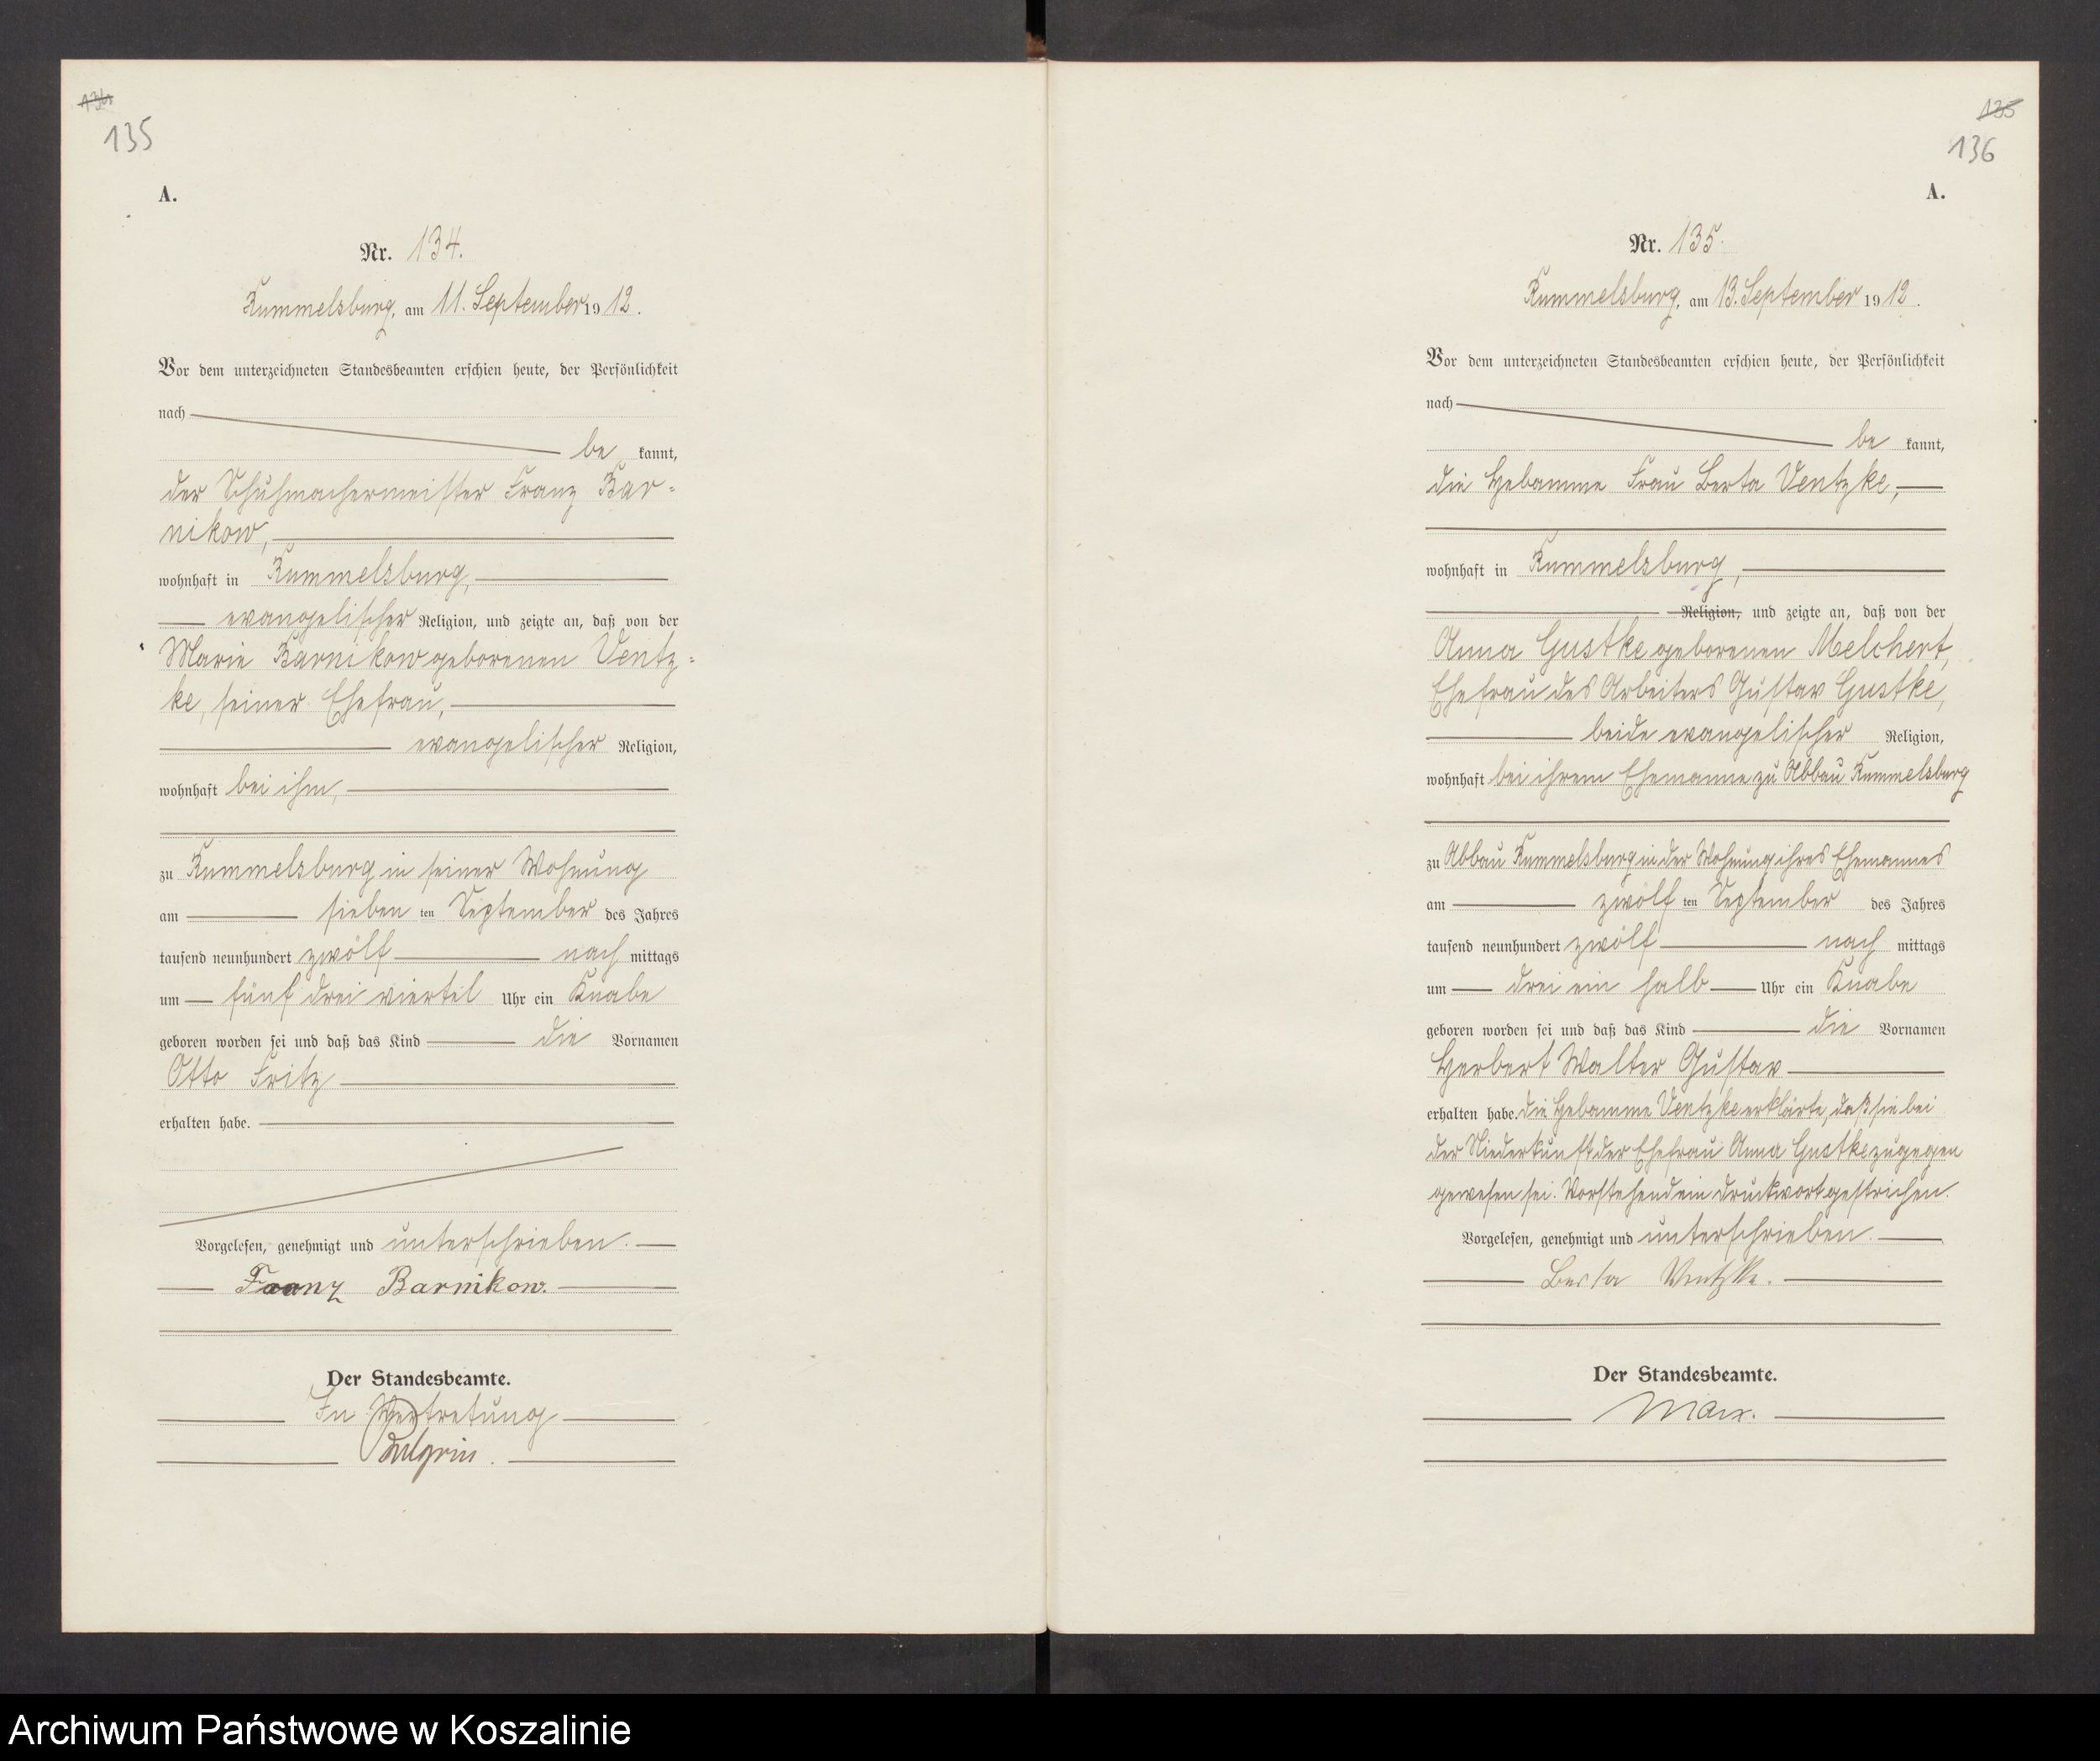 135
A.
Nr. 134.
Rummelsburg, am 11. September 1912.
Vor dem unterzeichneten Standesbeamten erschien heute, der Persönlichkeit
nach
be kannt,
der Schuhmachermeister Franz Bar-
nikow,
wohnhaft in Rummelsburg,
evangelischer Religion, und zeigte an, daß von der
Marie Barnikow geborenen Ventz-
ke, seiner Ehefrau,
evangelischer Religion,
wohnhaft bei ihm,
zu Rummelsburg in seiner Wohnung
am sieben ten September des Jahres
tausend neunhundert zwölf nach mittags
um fünf drei viertel Uhr ein Knabe
geboren worden sei und daß das Kind die Vornamen
Otto Fritz
erhalten habe.
Vorgelesen, genehmigt und unterschrieben.
Franz Barnikow.
Der Standesbeamte.
In Vertretung
135
136
A.
Nr. 135.
Rummelsburg, am 13. September 1912.
Vor dem unterzeichneten Standesbeamten erschien heute, der Persönlichkeit
nach
be kannt,
die Hebamme Frau Berta Ventzke,
wohnhaft in Rummelsburg,
Religion, und zeigte an, daß von der
Anna Gustke geborenen Melchert,
Ehefrau des Arbeiters Gustav Gustke,
beide evangelischer Religion,
wohnhaft bei ihrem Ehemanne zu Abbau Rummelsburg
zu Abbau Rummelsburg in der Wohnung ihres Ehemannes
am zwölf ten September des Jahres
tausend neunhundert zwölf nach mittags
um drei ein halb Uhr ein Knabe
geboren worden sei und daß das Kind die Vornamen
Herbert Walter Gustav
erhalten habe. Die Hebamme Ventzke erklärte, daß sie bei
der Niederkunft der Ehefrau Anna Gustke zugegen
gewesen sei. Vorstehend ein Druckwort gestrichen.
Vorgelesen, genehmigt und unterschrieben.
Berta Ventzke.
Der Standesbeamte.
Marx.
Archiwum Państwowe w Koszalinie